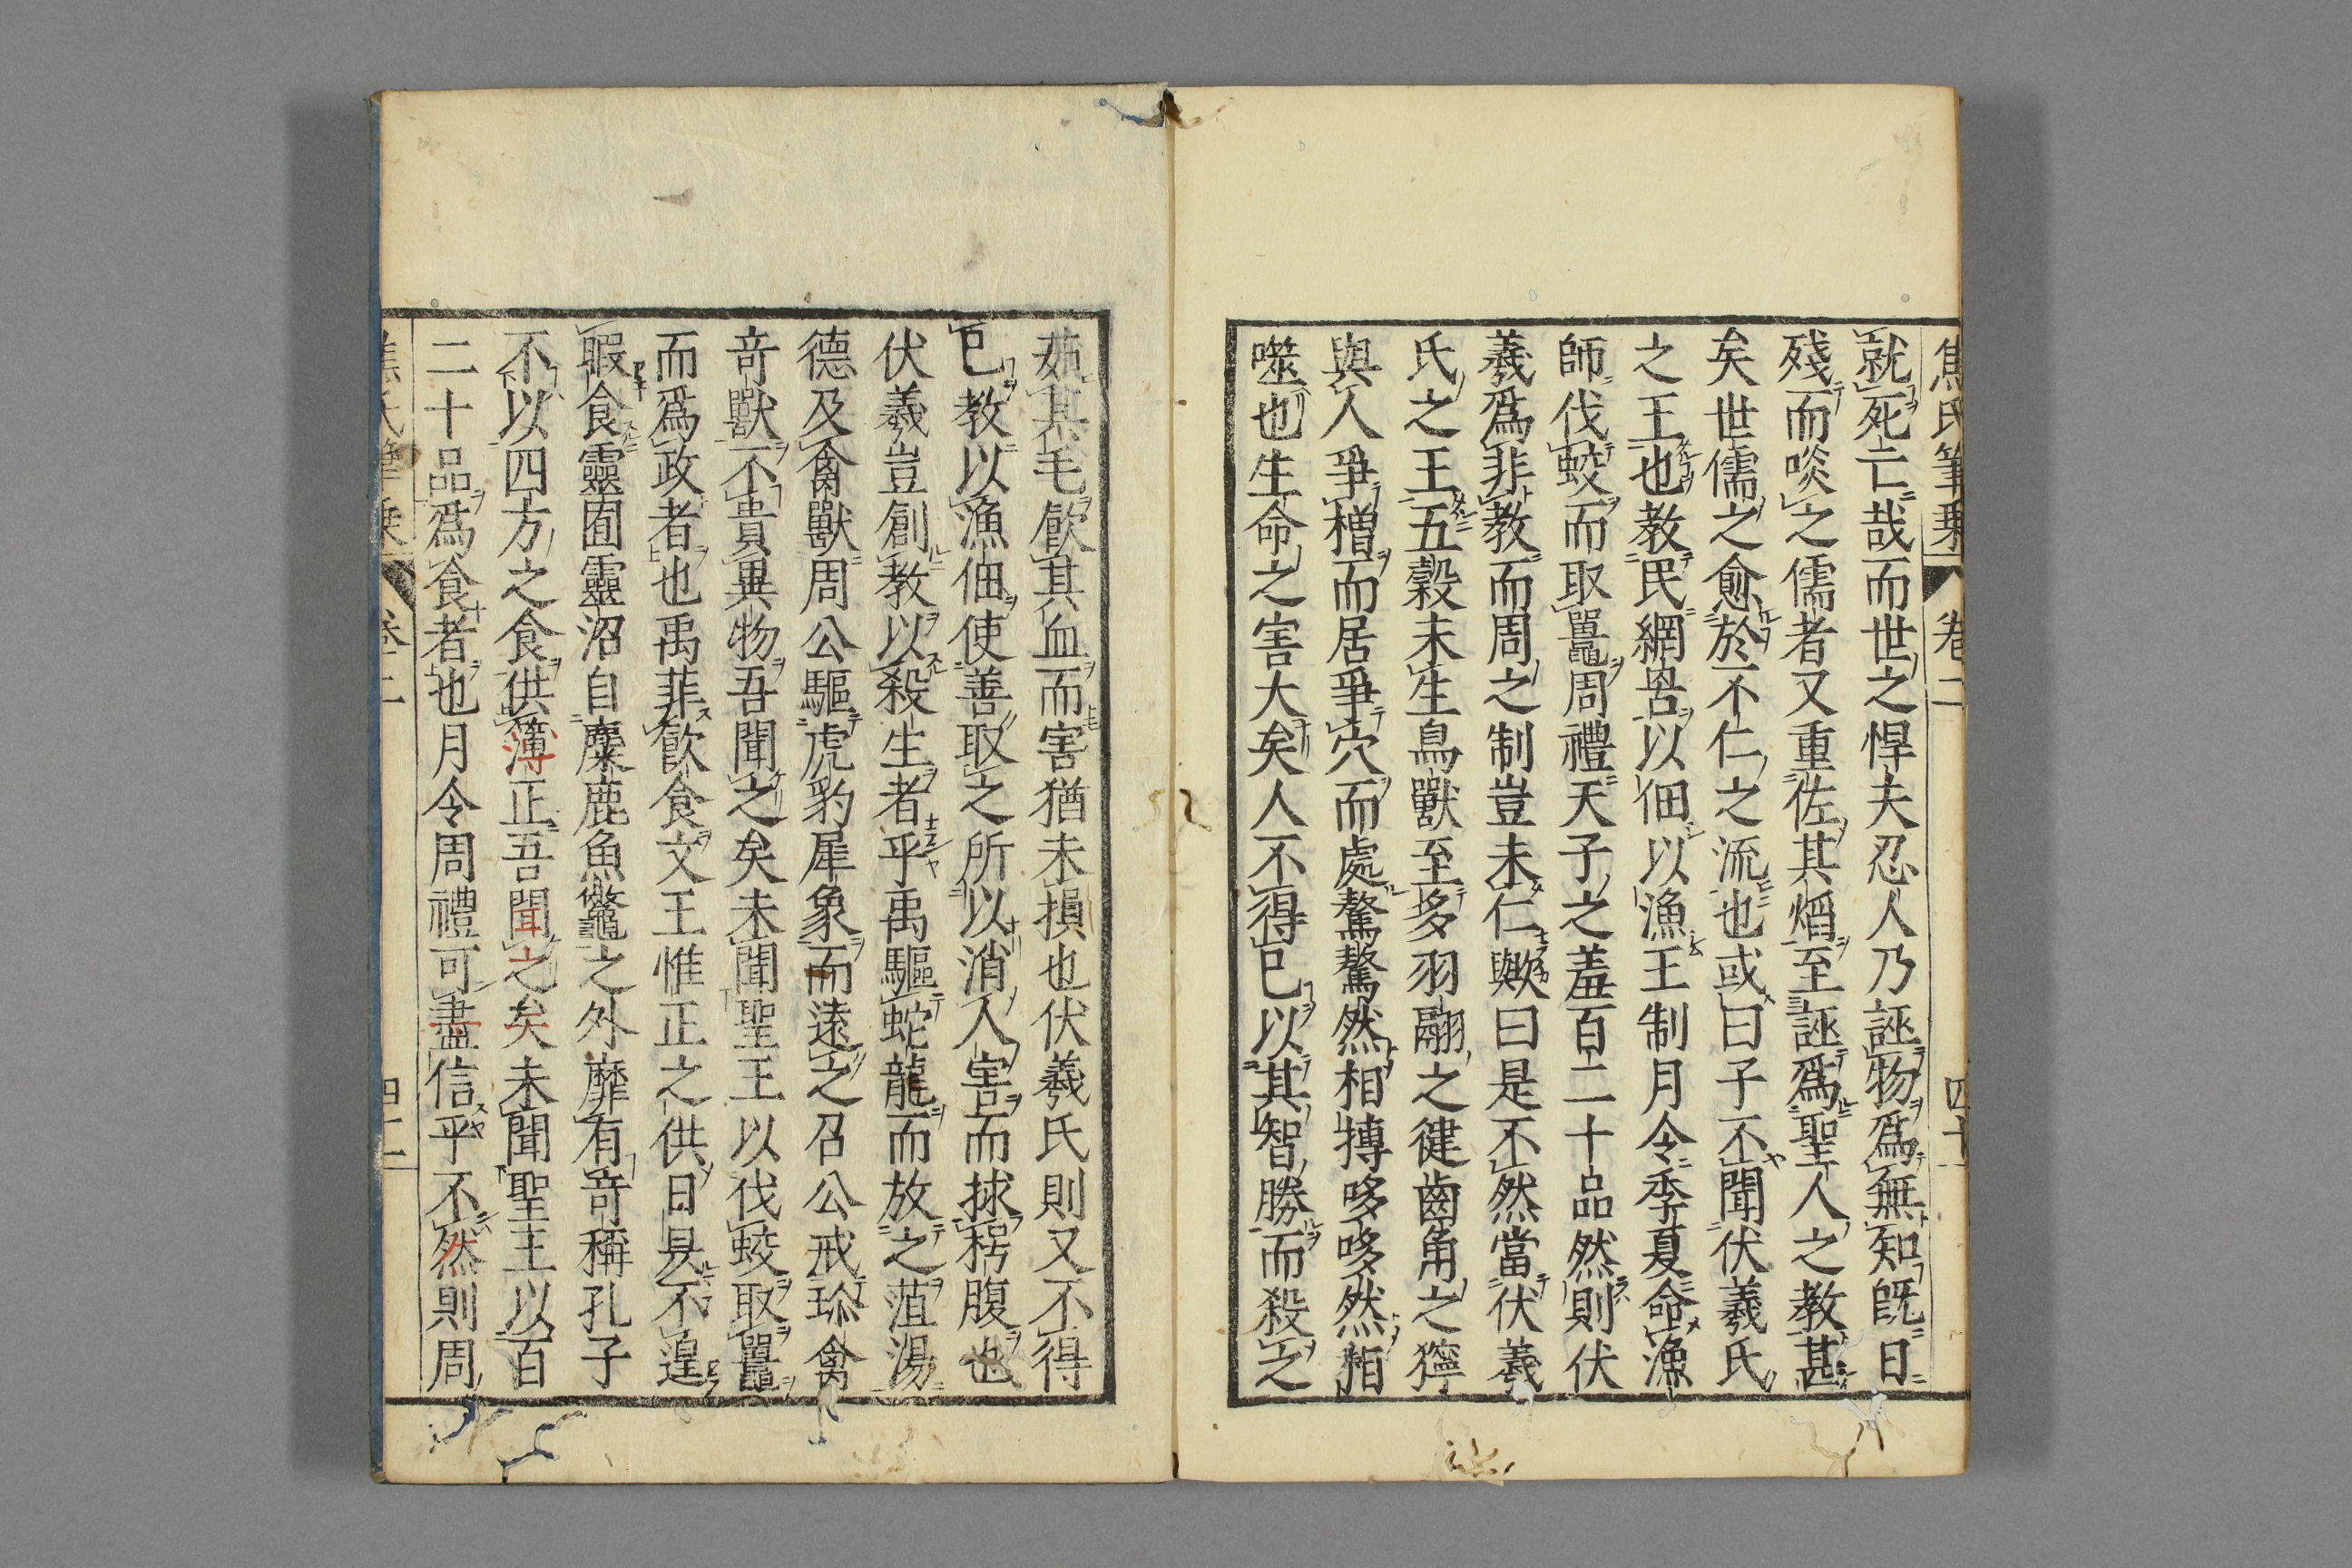 焦氏筆乗 卷二 四十
就死亡哉而世之悍夫忍人乃誣物爲無知既日
殘而啖之儒者又重佐其熖至誣爲聖人之教甚
矣世儒之愈於不仁之流也或曰子不聞伏羲氏
之王也教民網罟以佃以漁王制月令季夏命漁
師伐蛟而取鼉周禮天子之羞百二十品然則伏
羲爲非教而周之制豈未仁歟曰是不然當伏羲
氏之王五穀未生鳥獸至多羽翮之健齒角之獰
與人爭橧而居爭穴而處驁驁然相搏哆哆然相
噬也生命之害大矣人不得已以其智勝而殺之
茹其毛飮其血而害猶未損也伏羲氏則又不得
已教以漁佃使善取之所以消人害而捄枵腹也
伏羲豈創教以殺生者乎禹驅蛇龍而放之菹湯
德及禽獸周公驅虎豹犀象而遠之召公戒珍禽
竒獸不貴異物吾聞之矣未聞聖王以伐蛟取鼉
而爲政者也禹菲飮食文王惟正之供日昃不遑
暇食靈囿靈沼自麋鹿魚鼈之外靡有竒稱孔子
不以四方之食供簿正吾聞之矣未聞聖王以百
二十品爲食者也月令周禮可盡信乎不然則周
焦氏筆乗 卷二